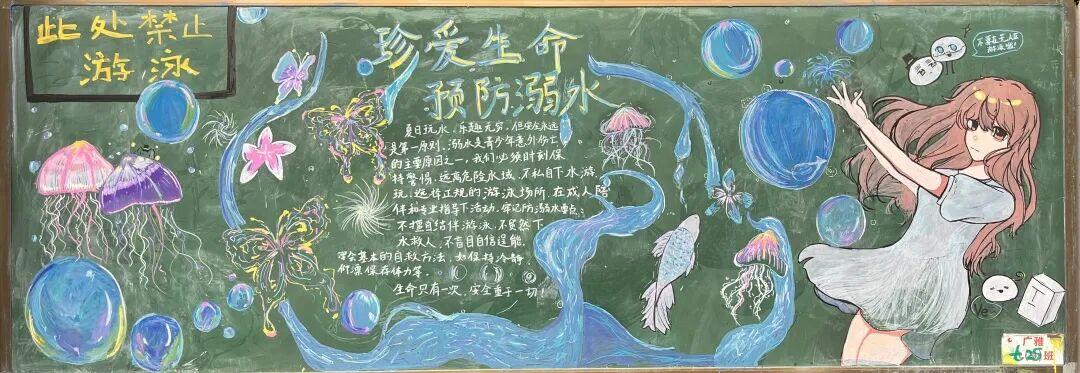 此处禁止
游泳
珍爱生命
预防溺水
夏日玩水，乐趣无穷，但安全永远
是第一原则。溺水是青少年意外伤亡
的主要原因之一，我们必须时刻保
持警惕，远离危险水域，不私自下水游
玩，选择正规的游泳场所，在成人陪
伴和专业指导下活动，牢记防溺水要点：
不擅自结伴游泳，不贸然下
水救人，不盲目自信逞能，
学会基本的自救方法，如保持冷静，
仰漂保存体力等。
生命只有一次，安全重于一切！
不要在无人区
游泳哦！
广雅
七25班